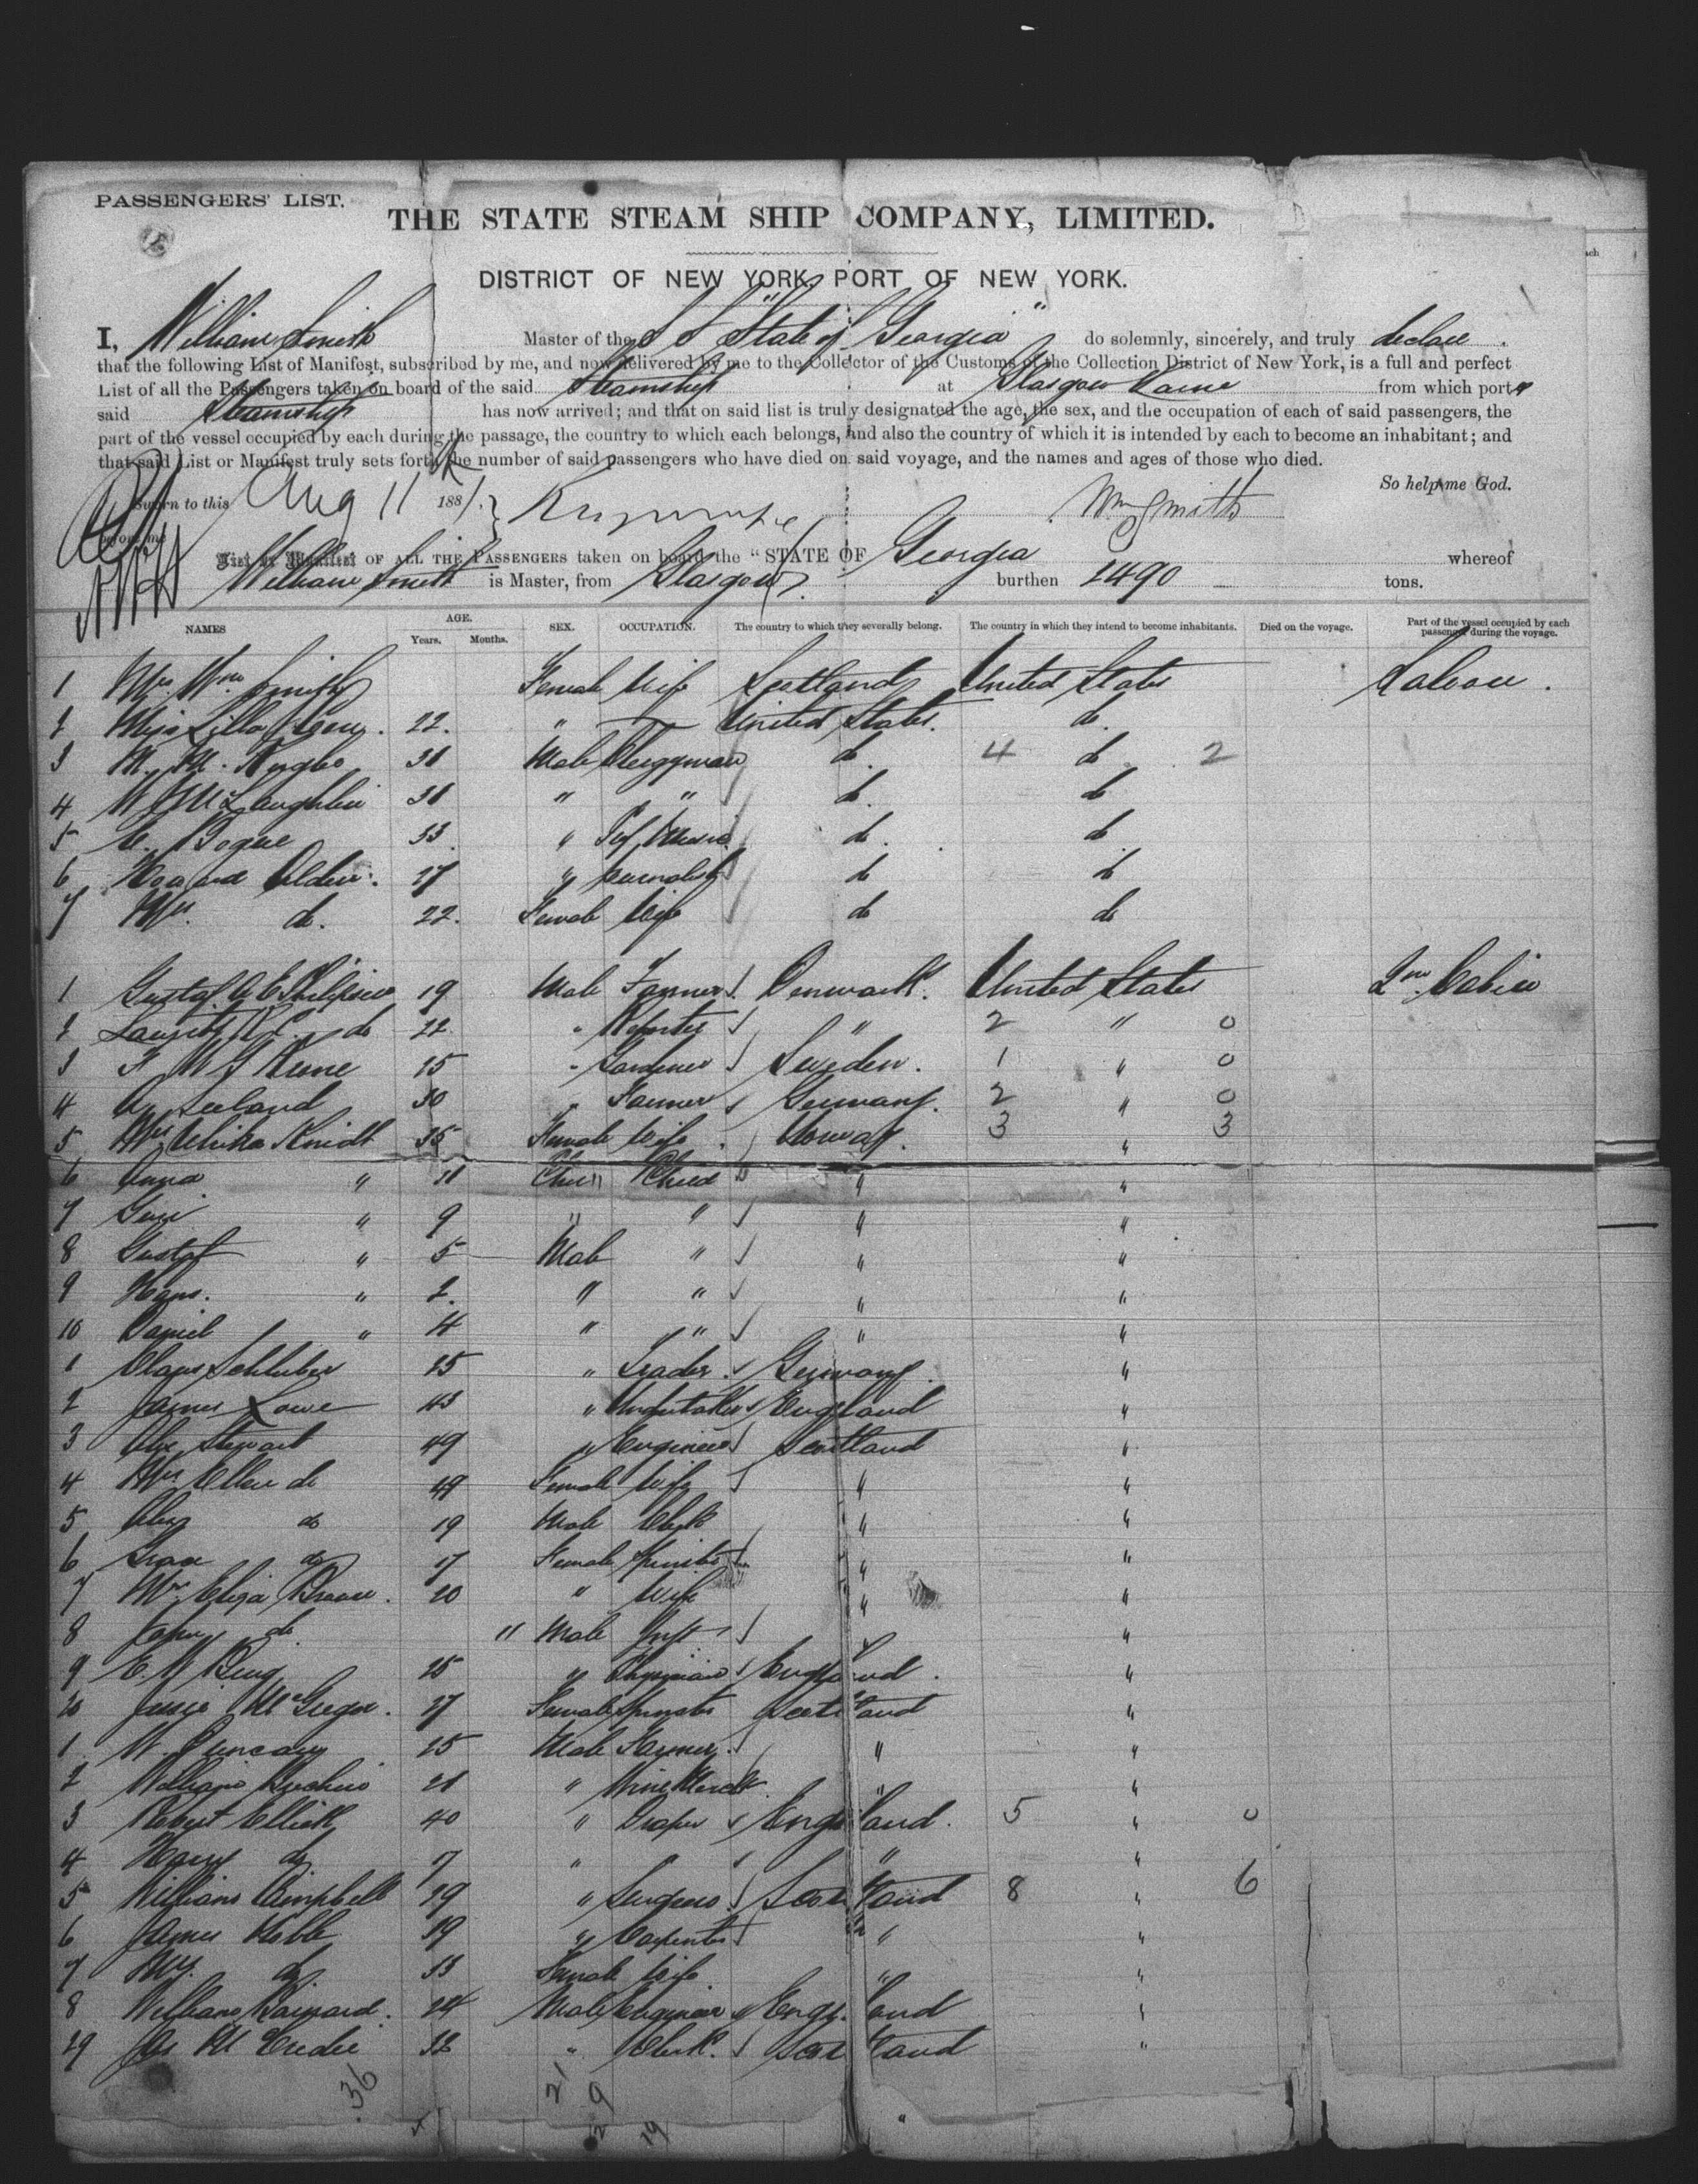 PASSENGERS' LIST.
THE STATE STEAM SHIP COMPANY, LIMITED.
DISTRICT OF NEW YORK, PORT OF NEW YORK.
I, William Smith Master of the S S "State of Georgia" do solemnly, sincerely, and truly declare.
that the following List of Manifest, subscribed by me, and now delivered by me to the Collector of the Customs of the Collection District of New York, is a full and perfect
List of all the Passengers taken on board of the said Steamship at Glasgow Larne from which port
said Steamship has now arrived; and that on said list is truly designated the age, the sex, and the occupation of each of said passengers, the
part of the vessel occupied by each during the passage, the country to which each belongs, and also the country of which it is intended by each to become an inhabitant; and
that said List or Manifest truly sets forth the number of said passengers who have died on said voyage, and the names and ages of those who died.
So help me God.
Sworn to this Aug 11 188 Wm Smith
before me
List or Manifest OF ALL THE PASSENGERS taken on board the "STATE OF Georgia whereof
William Smith is Master, from Glasgow burthen 2490 tons.
NAMES AGE. Years. Months. SEX. OCCUPATION. The country to which they severally belong. The country in which they intend to become inhabitants. Died on the voyage. Part of the vessel occupied by each passenger during the voyage.
1 Mrs Wm Smith Female Wife Scotland United States Saloon.
2 Miss Lilla 22. " United States. do.
3 M. M. 31 Male Clergyman do. 4 do 2
4 W J McLaughlin 31 " " do. do
5 C. Bogue 33. " Prof Music do. do
6 Howard Alden. 27 " Journalist do do
7 Mrs do. 22. Female Wife do do
1 Gustaf 19 Male Farmer Denmark. United States 2nd Cabin
2 do 22 " " 2 " 0
3 F W J 25 " Gardener Sweden. 1 " 0
4 A. Seeland 30 " Farmer Germany. 2 " 0
5 Mrs Ulrika 35 Female Wife Norway. 3 " 3
6 Anna " 11 Child " "
7 " 9 " " " "
8 Gustaf " 5 Male " " "
9 Hans. " 2. " " " "
10 Daniel " 4 " " " "
1 Claus 25 " Trader. Germany. "
2 James Lowe 43 " Undertaker England "
3 Alex Stewart 49 " Engineer Scotland "
4 Mrs Ellen do 49 Female Wife " "
5 Alex do 19 Male Clerk " "
6 Grace do 17 Female Spinster " "
7 Mrs Eliza Brown. 20 " Wife " "
8 John do " Male Inft " "
9 E. W. King 25 " Physician England. "
20 Jessie McGregor. 27 Female Spinster Scotland "
1 W. Duncan 25 Male Farmer. " "
2 William 21 " " "
3 Robert Elliott 40 " Draper England. 5 " 0
4 Harry do 7 " " "
5 William Campbell 29 " Scotland 8 " 6
6 James Kebble 39 " Carpenter " "
7 Mrs. do. 33 Female Wife. " "
8 William. 24 Male Engineer England "
29 Js M 32 " Clerk. Scotland "
36 21 9 2 19